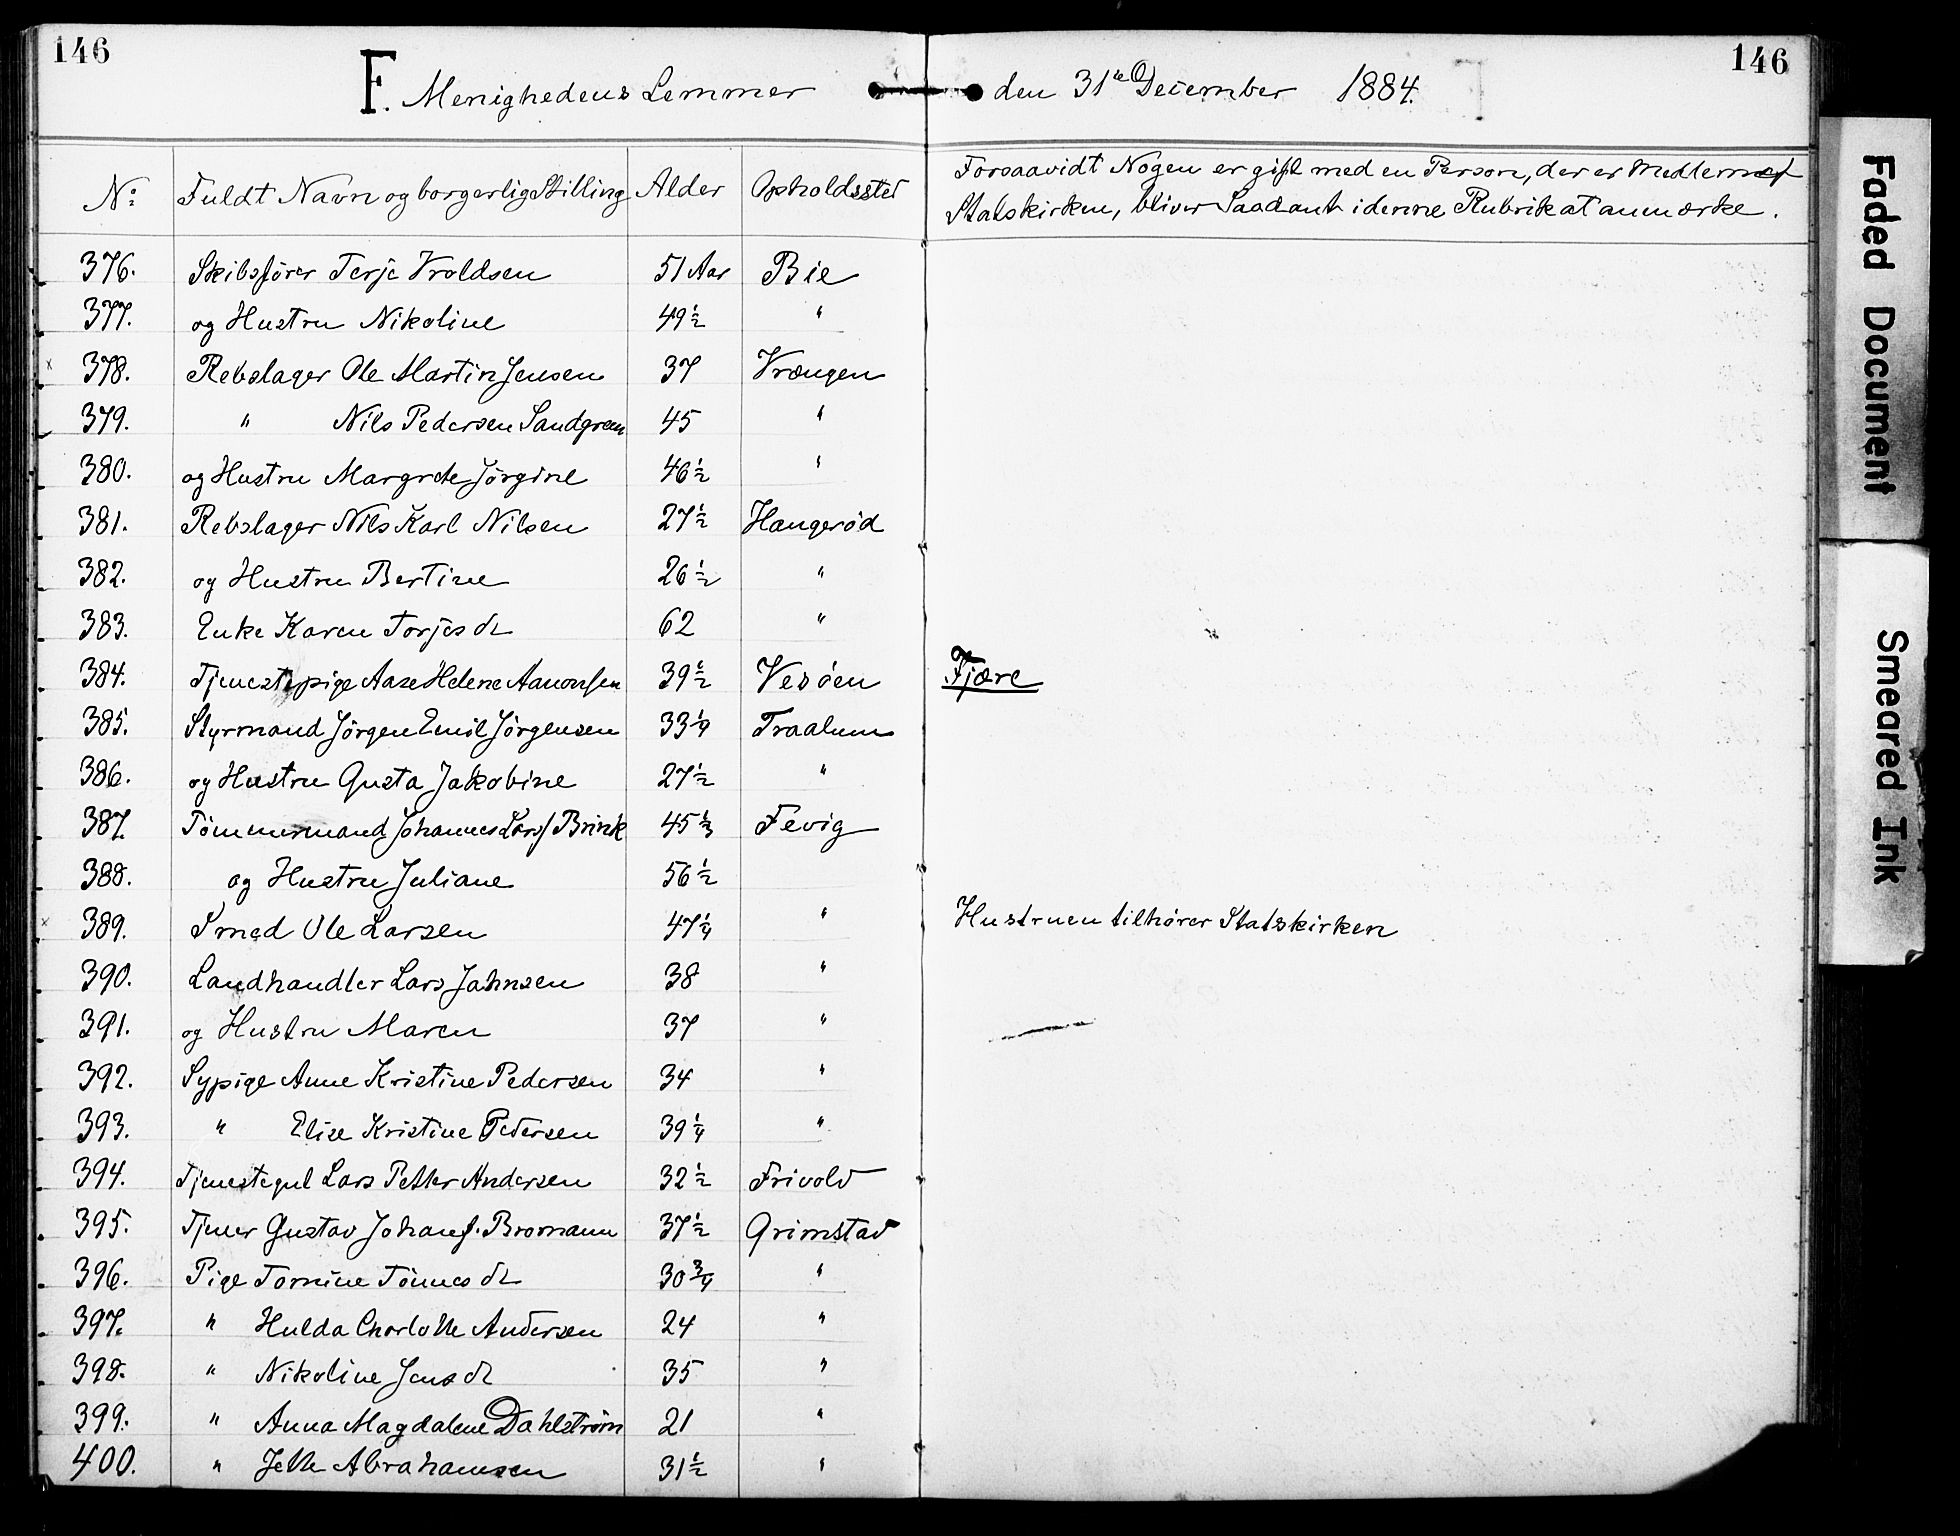 146
146
F. Menighedens Lemmer den 31te December 1884.
No: Fuldt Navn og borgerlig Stilling Alder Opholdssted Forsaavidt Nogen er gift med en Person, der er Medlem af
Statskirken, bliver Saadant i denne Rubrik at anmærke.
376. Skibsfører Terje Vroldsen 51 Aar Bie
377. og Hustru Nikoline 49 1/2 "
378. Rebslager Ole Martin Jensen 37 Vrængen
379. " Nils Pedersen Sandgreen 45 "
380. og Hustru Margrete Jørgine 46 1/2 "
381. Rebslager Nils Karl Nilsen 27 1/2 Haugerød
382. og Hustru Bertine 26 1/2 "
383. Enke Karen Torjesdt 62 "
384. Tjenestepige Aase Helene Aanonsen 39 1/2 Vesøen Fjære
385. Styrmand Jørgen Emil Jørgensen 33 1/4 Traalum
386. og Hustru Gusta Jakobine 27 1/2 "
387 Tömmermand Johannes Lars/ Brink 45 1/3 Fevig
388. og Hustru Juliane 56 1/2
389. Smed Ole Larsen 47 1/4 " Hustruen tilhører Statskirken
390. Landhandler Lars Jahnsen 38 "
391. og Hustru Maren 37 "
392. Sypige Anne Kristine Pedersen 34 "
393. " Elise Kristine Pedersen 39 1/4 "
394. Tjenestegut Lars Petter Andersen 32 1/2 Frivold
395. Tjener Gustav Johanf. Bromann 37 1/2 Grimstad
396. Pige Tomine Tönnesdt 30 3/4 "
397. " Hulda Charlotte Andersen 24 "
398. " Nikoline Jensdt 35 "
399. " Anna Magdalene Dahlstrøm 21 "
400. " Jette Abrahamsen 31 1/2 "
Faded Document
Smeared Ink